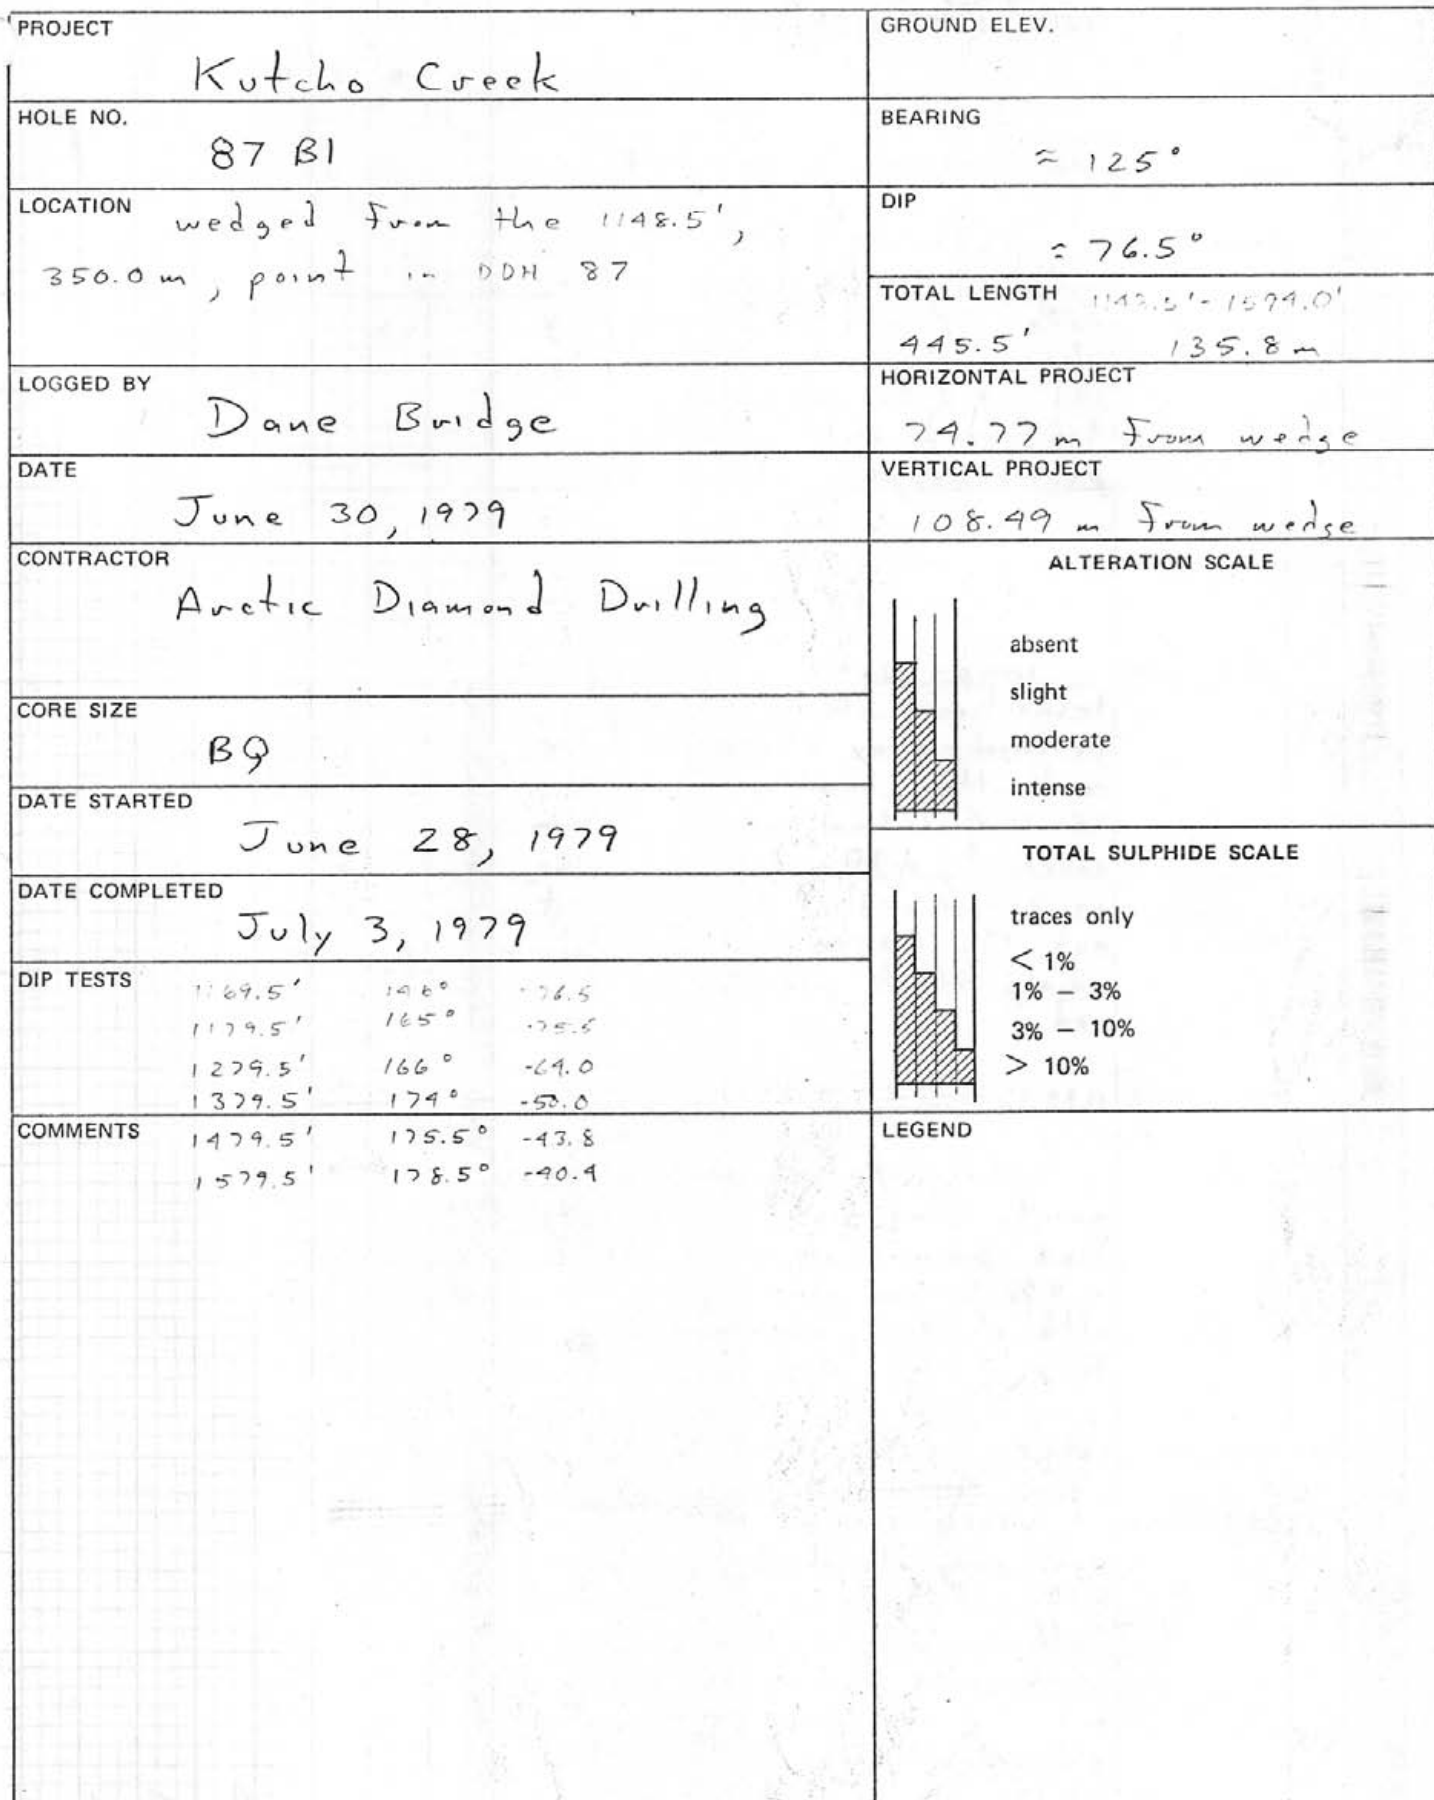 PROJECT
Kutcho Creek
HOLE NO.
87 B1
LOCATION wedged from the 1148.5',
350.0 m, point in DDH 87
LOGGED BY
Dane Bridge
DATE
June 30, 1979
CONTRACTOR
Arctic Diamond Drilling
CORE SIZE
BQ
DATE STARTED
June 28, 1979
DATE COMPLETED
July 3, 1979
DIP TESTS
1169.5' 146° -76.5
1179.5' 165° -75.5
1279.5' 166° -64.0
1379.5' 174° -50.0
COMMENTS
1479.5' 175.5° -43.8
1579.5' 178.5° -40.4
GROUND ELEV.
BEARING
≈ 125°
DIP
≈ 76.5°
TOTAL LENGTH 1148.5' - 1594.0'
445.5' 135.8 m
HORIZONTAL PROJECT
74.77 m from wedge
VERTICAL PROJECT
108.49 m from wedge
ALTERATION SCALE
absent
slight
moderate
intense
TOTAL SULPHIDE SCALE
traces only
< 1%
1% – 3%
3% – 10%
> 10%
LEGEND